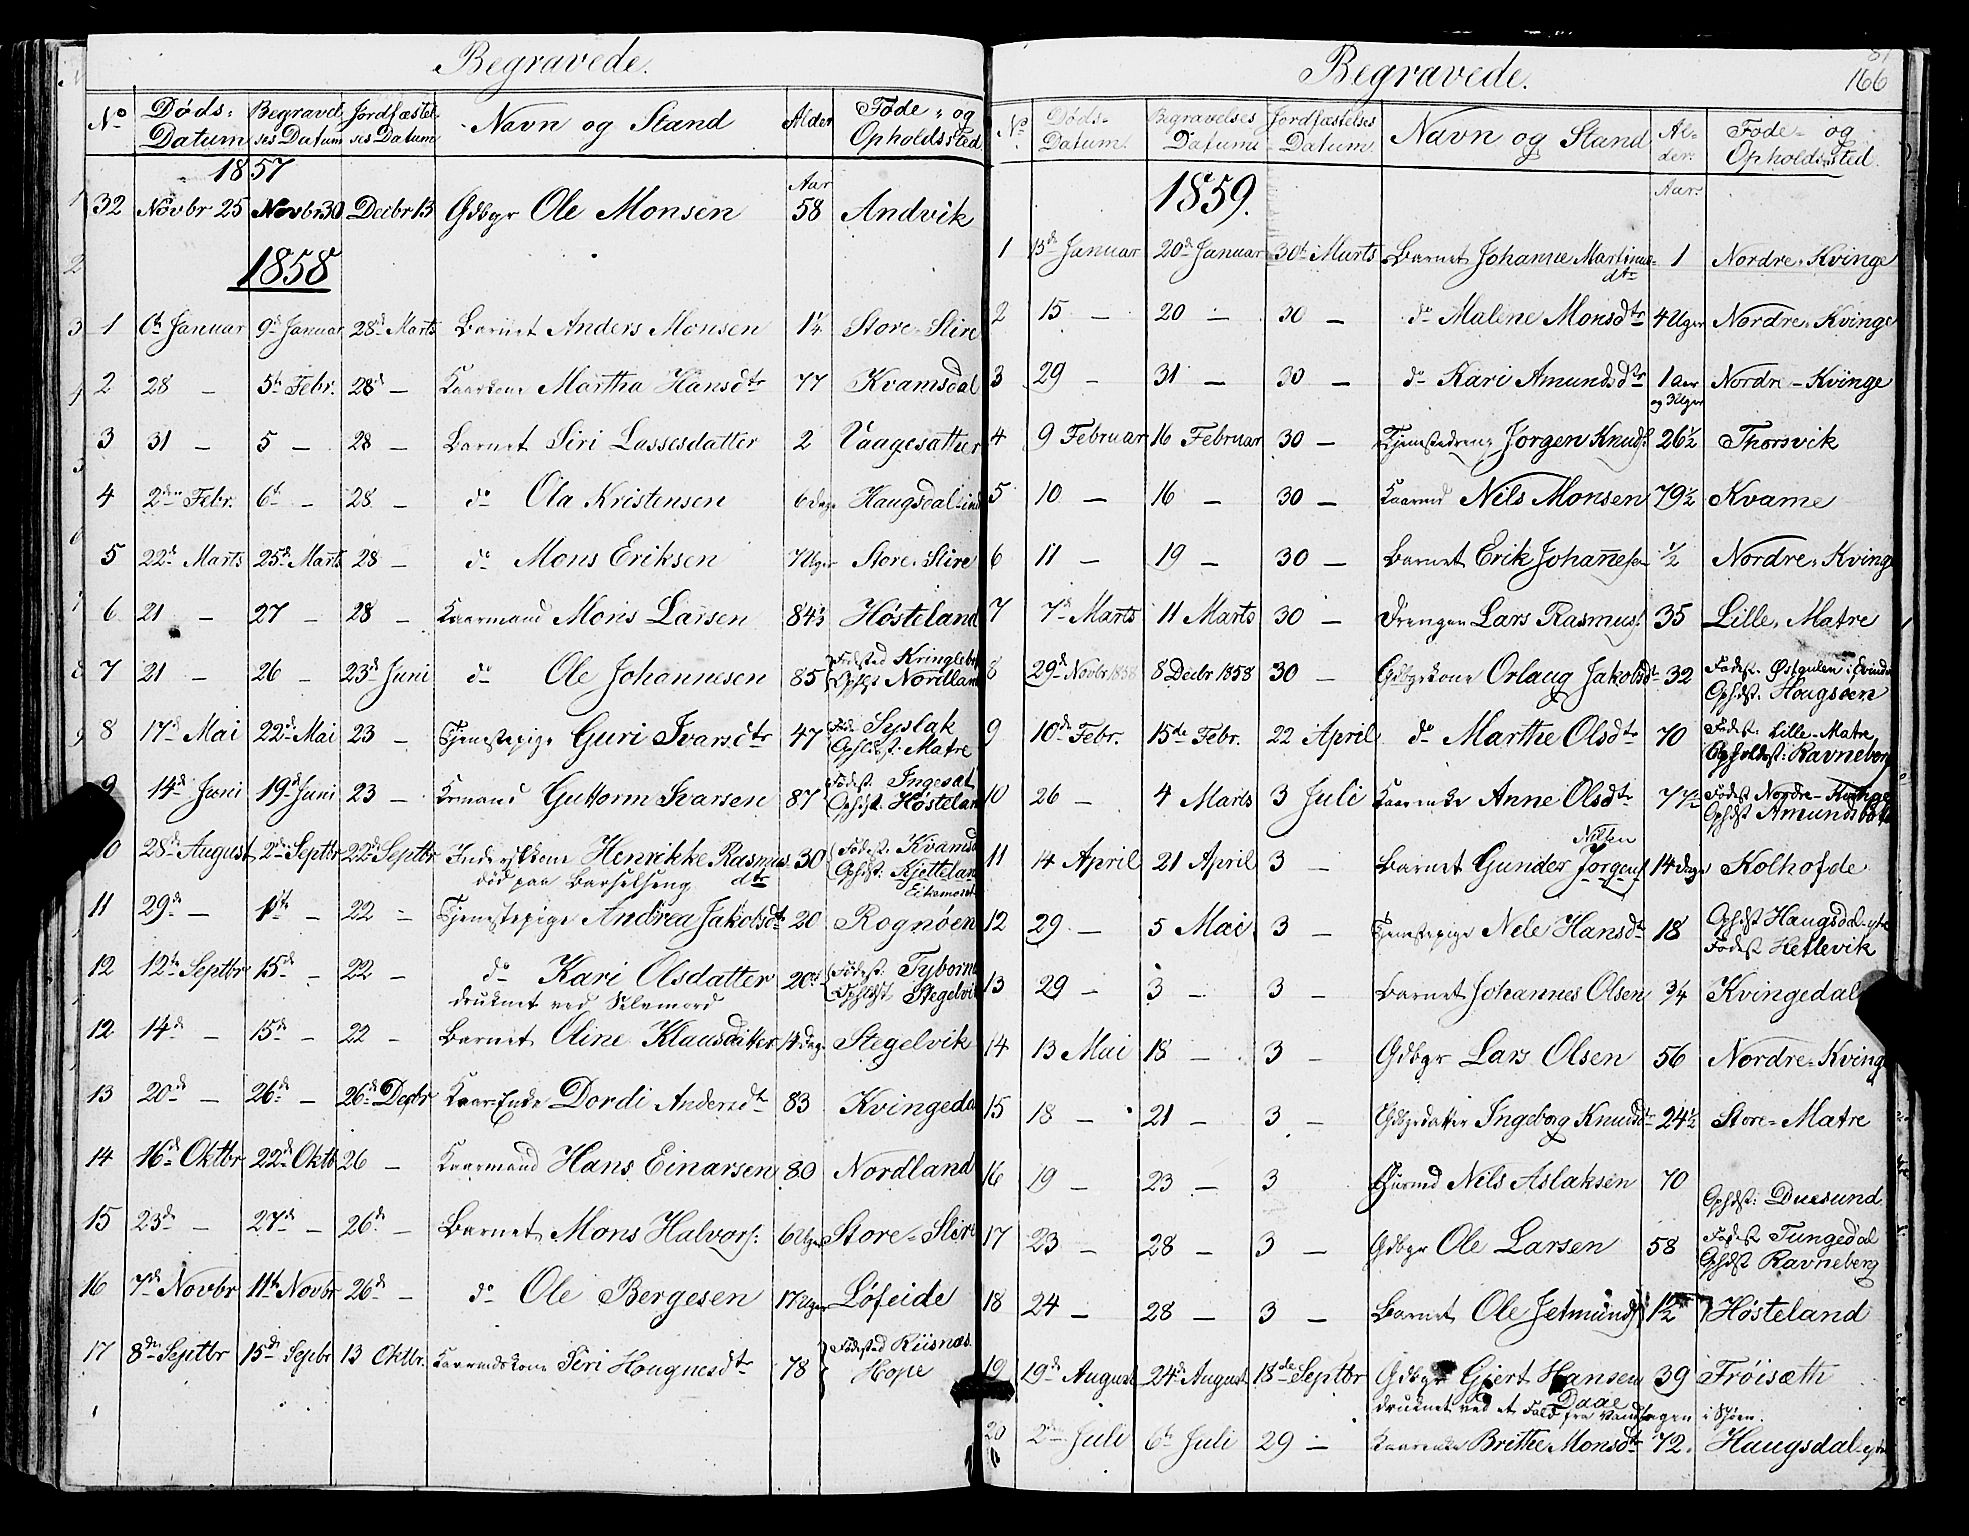 Begravede.
No Døds- Datum Begravelses Datum Jordfæstelses Datum Navn og Stand Alder Føde- og Opholdssted
1857
Aar
32 Novbr 25 Novbr 30 Decbr 13 Gdbgr Ole Monsen 58 Andvik
1858
1 6te Januar 9de Januar 28de Marts Barnet Anders Monsen 1¼ Store-Stire
2 28 – 5te Febr. 28de – Kaarkone Martha Hansdtr 77 Kvamsdal
3 31 – 5 – 28 – Barnet Siri Lassesdatter 2 Vaagesæther
4 2den Febr. 6te – 28 – do Ola Kristensen 6 Dage Haugsdal-ind
5 22de Marts 25de Marts 28 – do Mons Eriksen 7 Uger Store-Stire
6 21 – 27 – 28 – Kaarmand Mons Larsen 84½ Høsteland
7 21 – 26 – 23de Juni do Ole Johannesen 85 Fødested Kringleb
Nordland
8 17de Mai 22de Mai 23 – Tjenestepige Guri Ivarsdtr 47 Føde Syslak
Ophdst: Matre
9 14de Juni 19de Juni 23 – Krmand Guttorm Ivarsen 87 Fødest. Ingesæt
Ophdst. Høsteland
10 28de August 2den Septbr 22de Septbr Henrikke Rasmusdtr 30 Fødest: Kvamsd
død paa Barselseng Ophdst: Kjetteland
Eikemoret
11 29de – 1ste – 22 – Tjenestepige Andrea Jakobsdtr 20 Rognøen
12 12te Septbr 15de – 22 – do Kari Olsdatter 20 Fødest: Tyborne
druknet ved Selvmord Ophdst Stegelvik
12 14de – 15de – 22 – Barnet Oline Klausdatter 14 Dage Stegelvik
13 20de – 26de – 26de Decbr Kaar-Enke Dordi Andersdtr 83 Kvingeda
14 16de Oktbr 22de Oktb 26 – Kaarmand Hans Einarsen 80 Nordland
15 23de – 27de – 26de – Barnet Mons Halvors: 6 Uger Store-Stire
16 7de Novbr 11te Novbr 26de – do Ole Bergesen 17 Uger Løfeide
17 8de Septbr 15de Sepbr 13 Oktbr. Kaarmdskone Siri Haugnesdtr 78 Fødested Riisnæs.
Hope
Begravede.
166
No. Døds- Datum. Begravelses Datum Jordfæstelses Datum Navn og Stand Al- der. Føde- og Opholdssted.
Aar.
1859.
1 13de Januar 20de Januar 30te Marts Barnet Johanne Martinus- 1 Nordre-Kvinge
dtr
2 15 – 20 – 30 – do Malene Monsdtr 4 Uger Nordre-Kvinge
3 29 – 31 – 30 – do Kari Amundsdtr 1 aar Nordre-Kvinge
og 3 Uger
4 9 Februar 16 Februar 30 – Tjenestedreng Jorgen Knuds 26½ Thorsvik
5 10 – 16 – 30 – Kaarmd Nils Monsen 79½ Kvame
6 11 – 19 – 30 – Barnet Erik Johannesen ½ Nordre-Kvinge
7 7de Marts 11 Marts 30 – Drengen Lars Rasmus: 35 Lille-Matre
8 29de Novbr 1858 8 Decbr 1858 30 – Gdbgrkone Orlaug Jakobsdtr 32 Fødest. Østgulen i Evind
Ophdst. Haugsøen
9 10de Febr. 15de Febr. 22 April do Marthe Olsdtr 70 Fødest: Lille-Matre
Opholdst: Ravneberg
10 26 – 4 Marts 3 Juli Kaarenke Anne Olsdtr 77½ Fødest Nordre-Kvinge
Ophdst Amundsbot
Nilsen
11 14 April 21 April 3 – Barnet Gunder Jorgens 14 Dage Kolhofde
12 29 – 5 Mai 3 – Tjenestepige Nele Hansdtr 18 Ophdst Haugsdal-ytre
Fødest Hetlevik
13 29 – 3 – 3 – Barnet Johannes Olsen ¾ Kvingedal
14 13 Mai 18 – 3 – Gdbgr Lars Olsen 56 Nordre-Kvinge
15 18 – 21 – 3 – Gdbgrdatter Ingeborg Knudsdtr 24½ Store-Matre
16 19 – 23 – 3 Nils Aslaksen 70
Ophdst: Duesund
17 23 – 28 – 3 – Gdbgr Ole Larsen 58 Fødest Tungedal
Ophdst Ravneberg
18 24 – 28 – 3 – Barnet Ole Jetmunds 1½ Høsteland
19 19de August 24de August 18de Septbr Gdbgr Gjert Hansen 39 Frøisæth
Daae
druknet ved et Fald fra i Sjøen.
20 2den Juli 6te Juli 29 – Kaarenke Brithe Monsdtr 72. Haugsdal-ytre